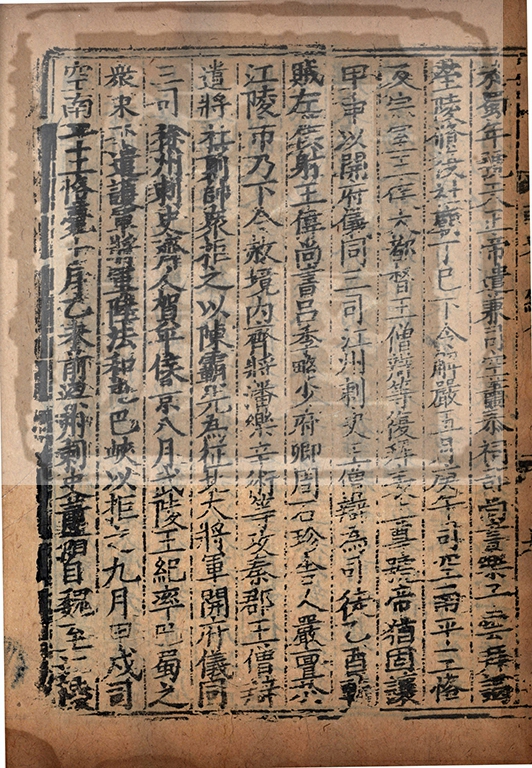 於蜀年號天正帝遣兼司空蕭泰祠部尚書樂子雲拜謁
塋陵脩復社廟丁巳下令解嚴五月庚午司空南平王恪
及宗室王侯大都督王僧辯等復拜表上尊號帝猶固讓
甲申以開府儀同三司江州刺史王僧辯為司徒乙酉斬
賊左僕射王偉尚書呂季略少府卿周石珍舍人嚴亶於
江陵市乃下令赦境內齊將潘樂辛術等攻秦郡王僧辯
遣將杜崱帥眾拒之以陳霸先為征北大將軍開府儀同
三司徐州刺史齊人賀平侯景八月武陵王紀率巴蜀之
眾東下遣護軍將軍陸法和屯巴峽以拒之九月甲戌司
空南平王恪薨十月乙未前梁州刺史蕭循自魏至江陵